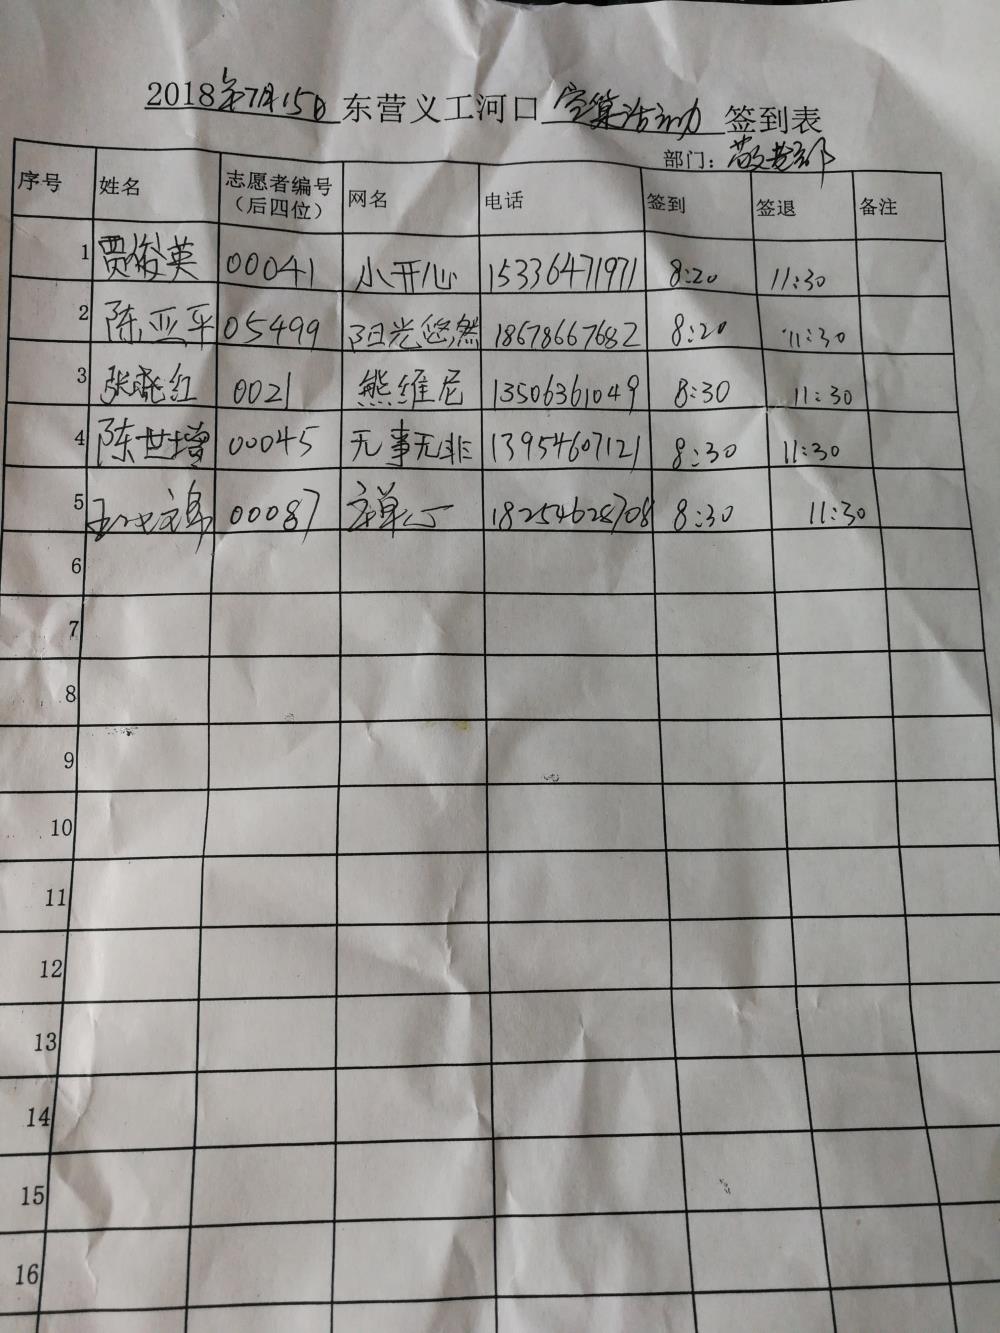 2018年7月15日 东营义工河口 活动 签到表
部门：敬老部
序号 姓名 志愿者编号（后四位） 网名 电话 签到 签退 备注
1 贾俊英 00041 小开心 15336471971 8:20 11:30
2 陈亚平 05499 阳光悠然 18678667682 8:20 11:30
3 张晓红 0021 熊维尼 13506361049 8:30 11:30
4 陈世增 00045 无事无非 13954607121 8:30 11:30
5 00087 18254628708 8:30 11:30
6
7
8
9
10
11
12
13
14
15
16